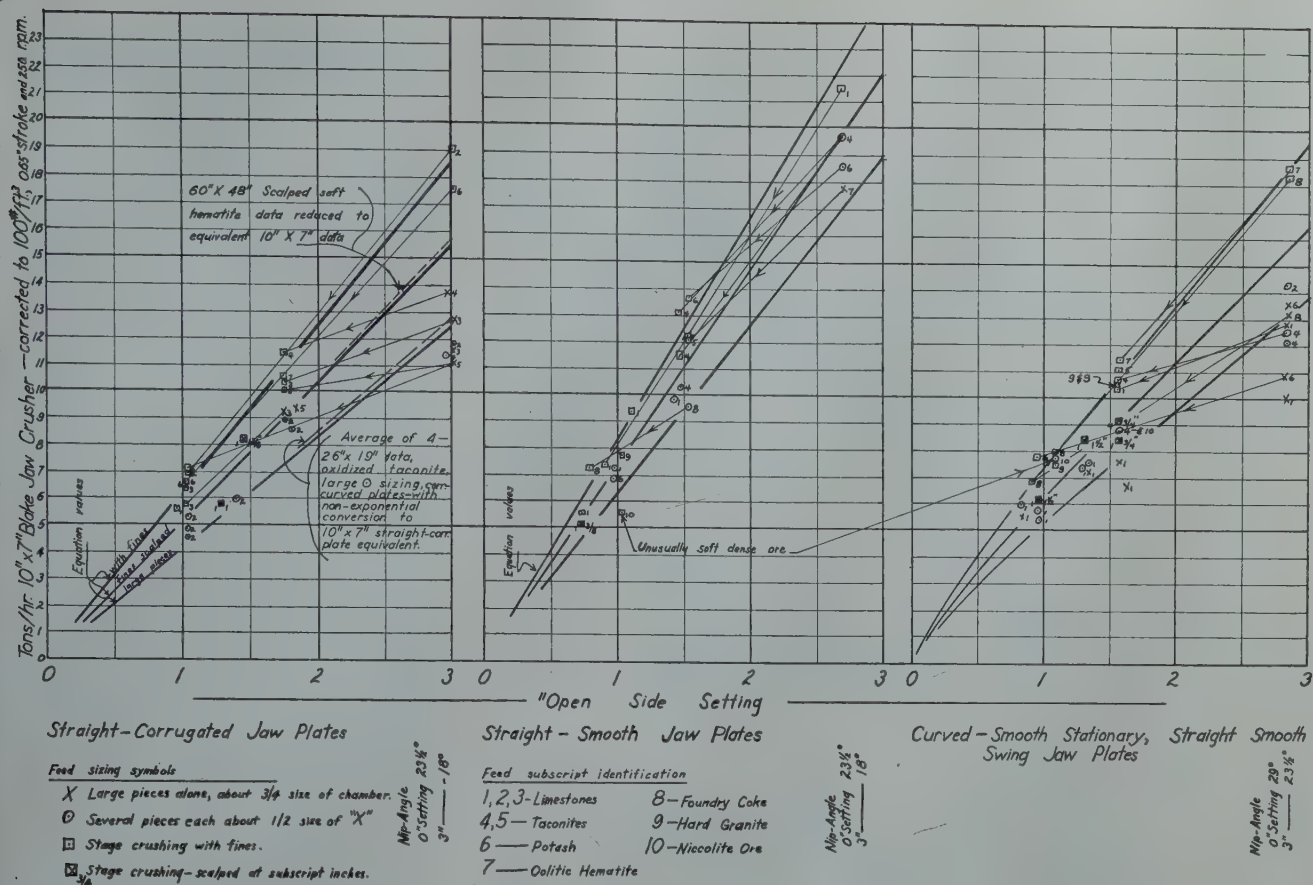 Tons/hr. 10"x7" Blake Jaw Crusher — corrected to 100#/ft³ 0.65" stroke and 250 r.p.m.
23
22
21
20
19
18
17
16
15
14
13
12
11
10
9
8
7
6
5
4
3
2
1
0
60" X 48" Scalped soft
hematite data reduced to
equivalent 10" X 7" data
Average of 4—
26"x 19" data,
oxidized taconite,
large ⊙ sizing, cor.-
curved plates—with
non-exponential
conversion to
10"x 7" straight-corr.
plate equivalent.
Equation values
with fines
fines scalped
large pieces
Equation values
Unusually soft dense ore
9&9
1½"
3/4"
4-&10
3/4"
0 1 2 3
0 1 2 3
0 1 2 3
"Open Side Setting
Straight-Corrugated Jaw Plates
Feed sizing symbols
X Large pieces alone, about 3/4 size of chamber.
⊙ Several pieces each about 1/2 size of "X"
⊡ Stage crushing with fines.
⊠ 3/4 Stage crushing-scalped at subscript inches.
Nip-Angle
0" Setting 23½°
3" —— -18°
Straight-Smooth Jaw Plates
Feed subscript identification
1,2,3-Limestones
4,5— Taconites
6 — Potash
7 — Oolitic Hematite
8-Foundry Coke
9-Hard Granite
10-Niccolite Ore
Nip-Angle
0" Setting 23½°
3" —— 18°
Curved-Smooth Stationary, Straight Smooth
Swing Jaw Plates
Nip-Angle
0" Setting 29°
3" —— 23½°